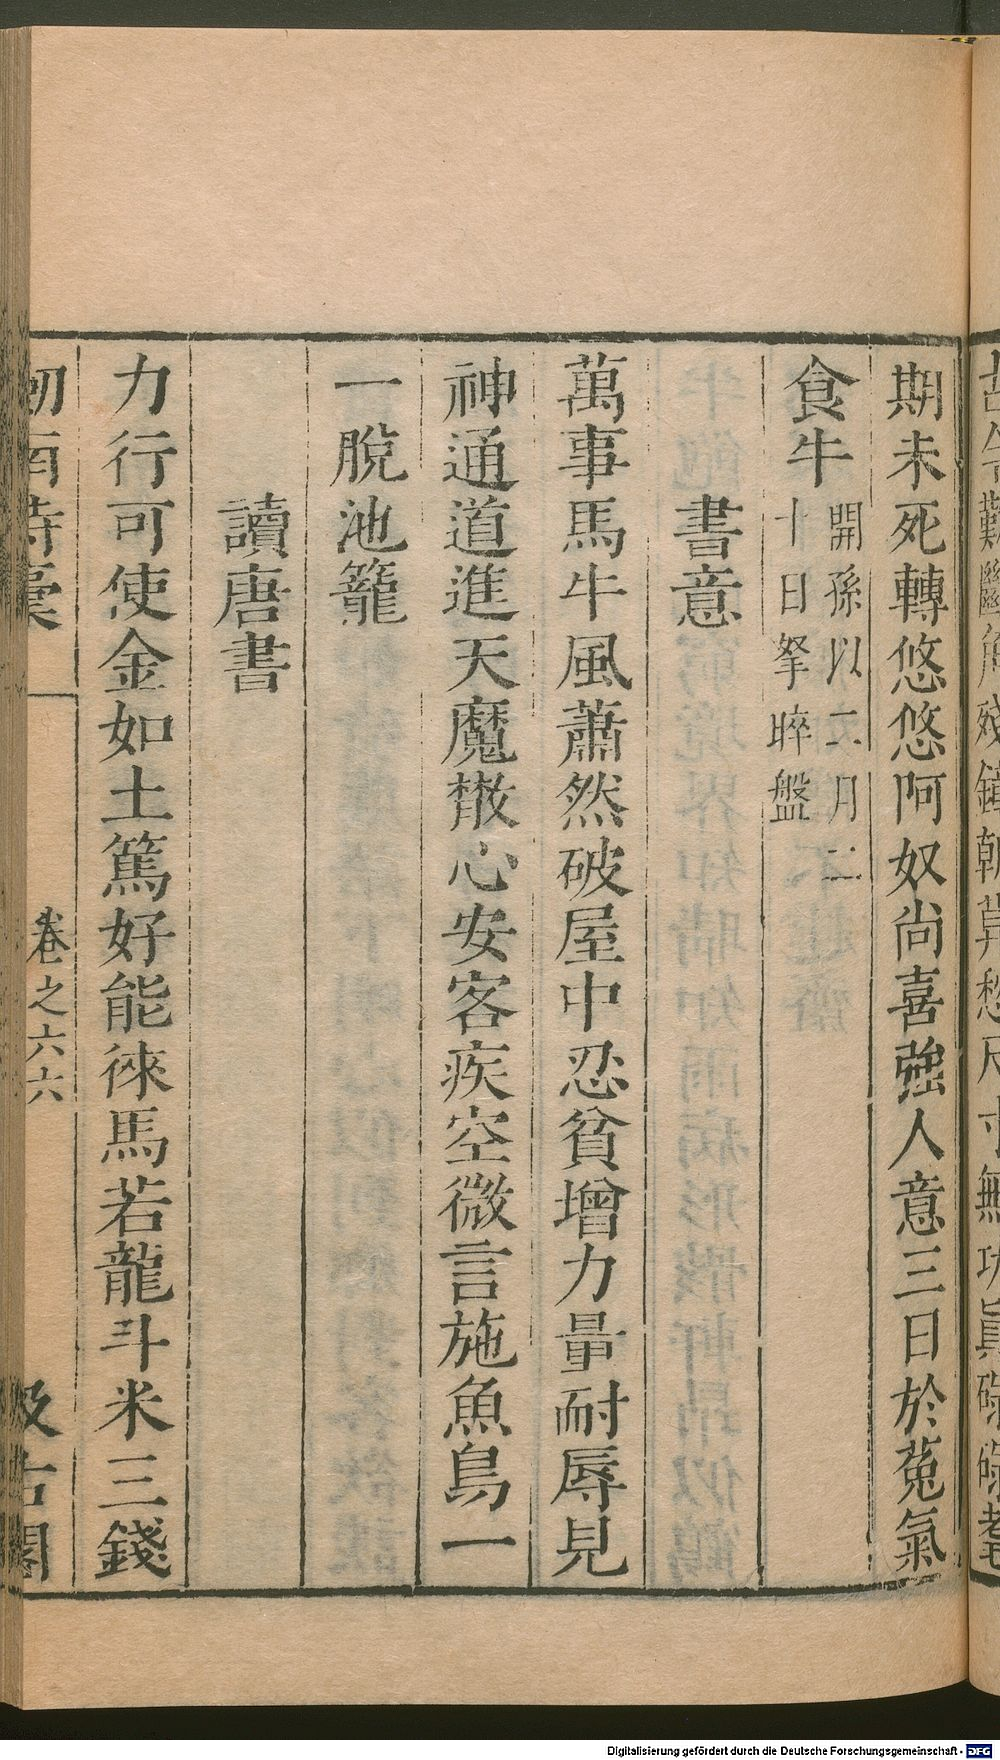 期未死轉悠悠阿奴尚喜強人意三日於菟氣
食牛 開孫以二月二十日拏晬盤
書意
萬事馬牛風蕭然破屋中忍貧增力量耐辱見
神通道進天魔散心安客疾空微言施魚鳥一
一脫池籠
讀唐書
力行可使金如土篤好能徠馬若龍斗米三錢
劒南詩稾 卷之六六 汲古閣
Digitalisierung gefördert durch die Deutsche Forschungsgemeinschaft - DFG